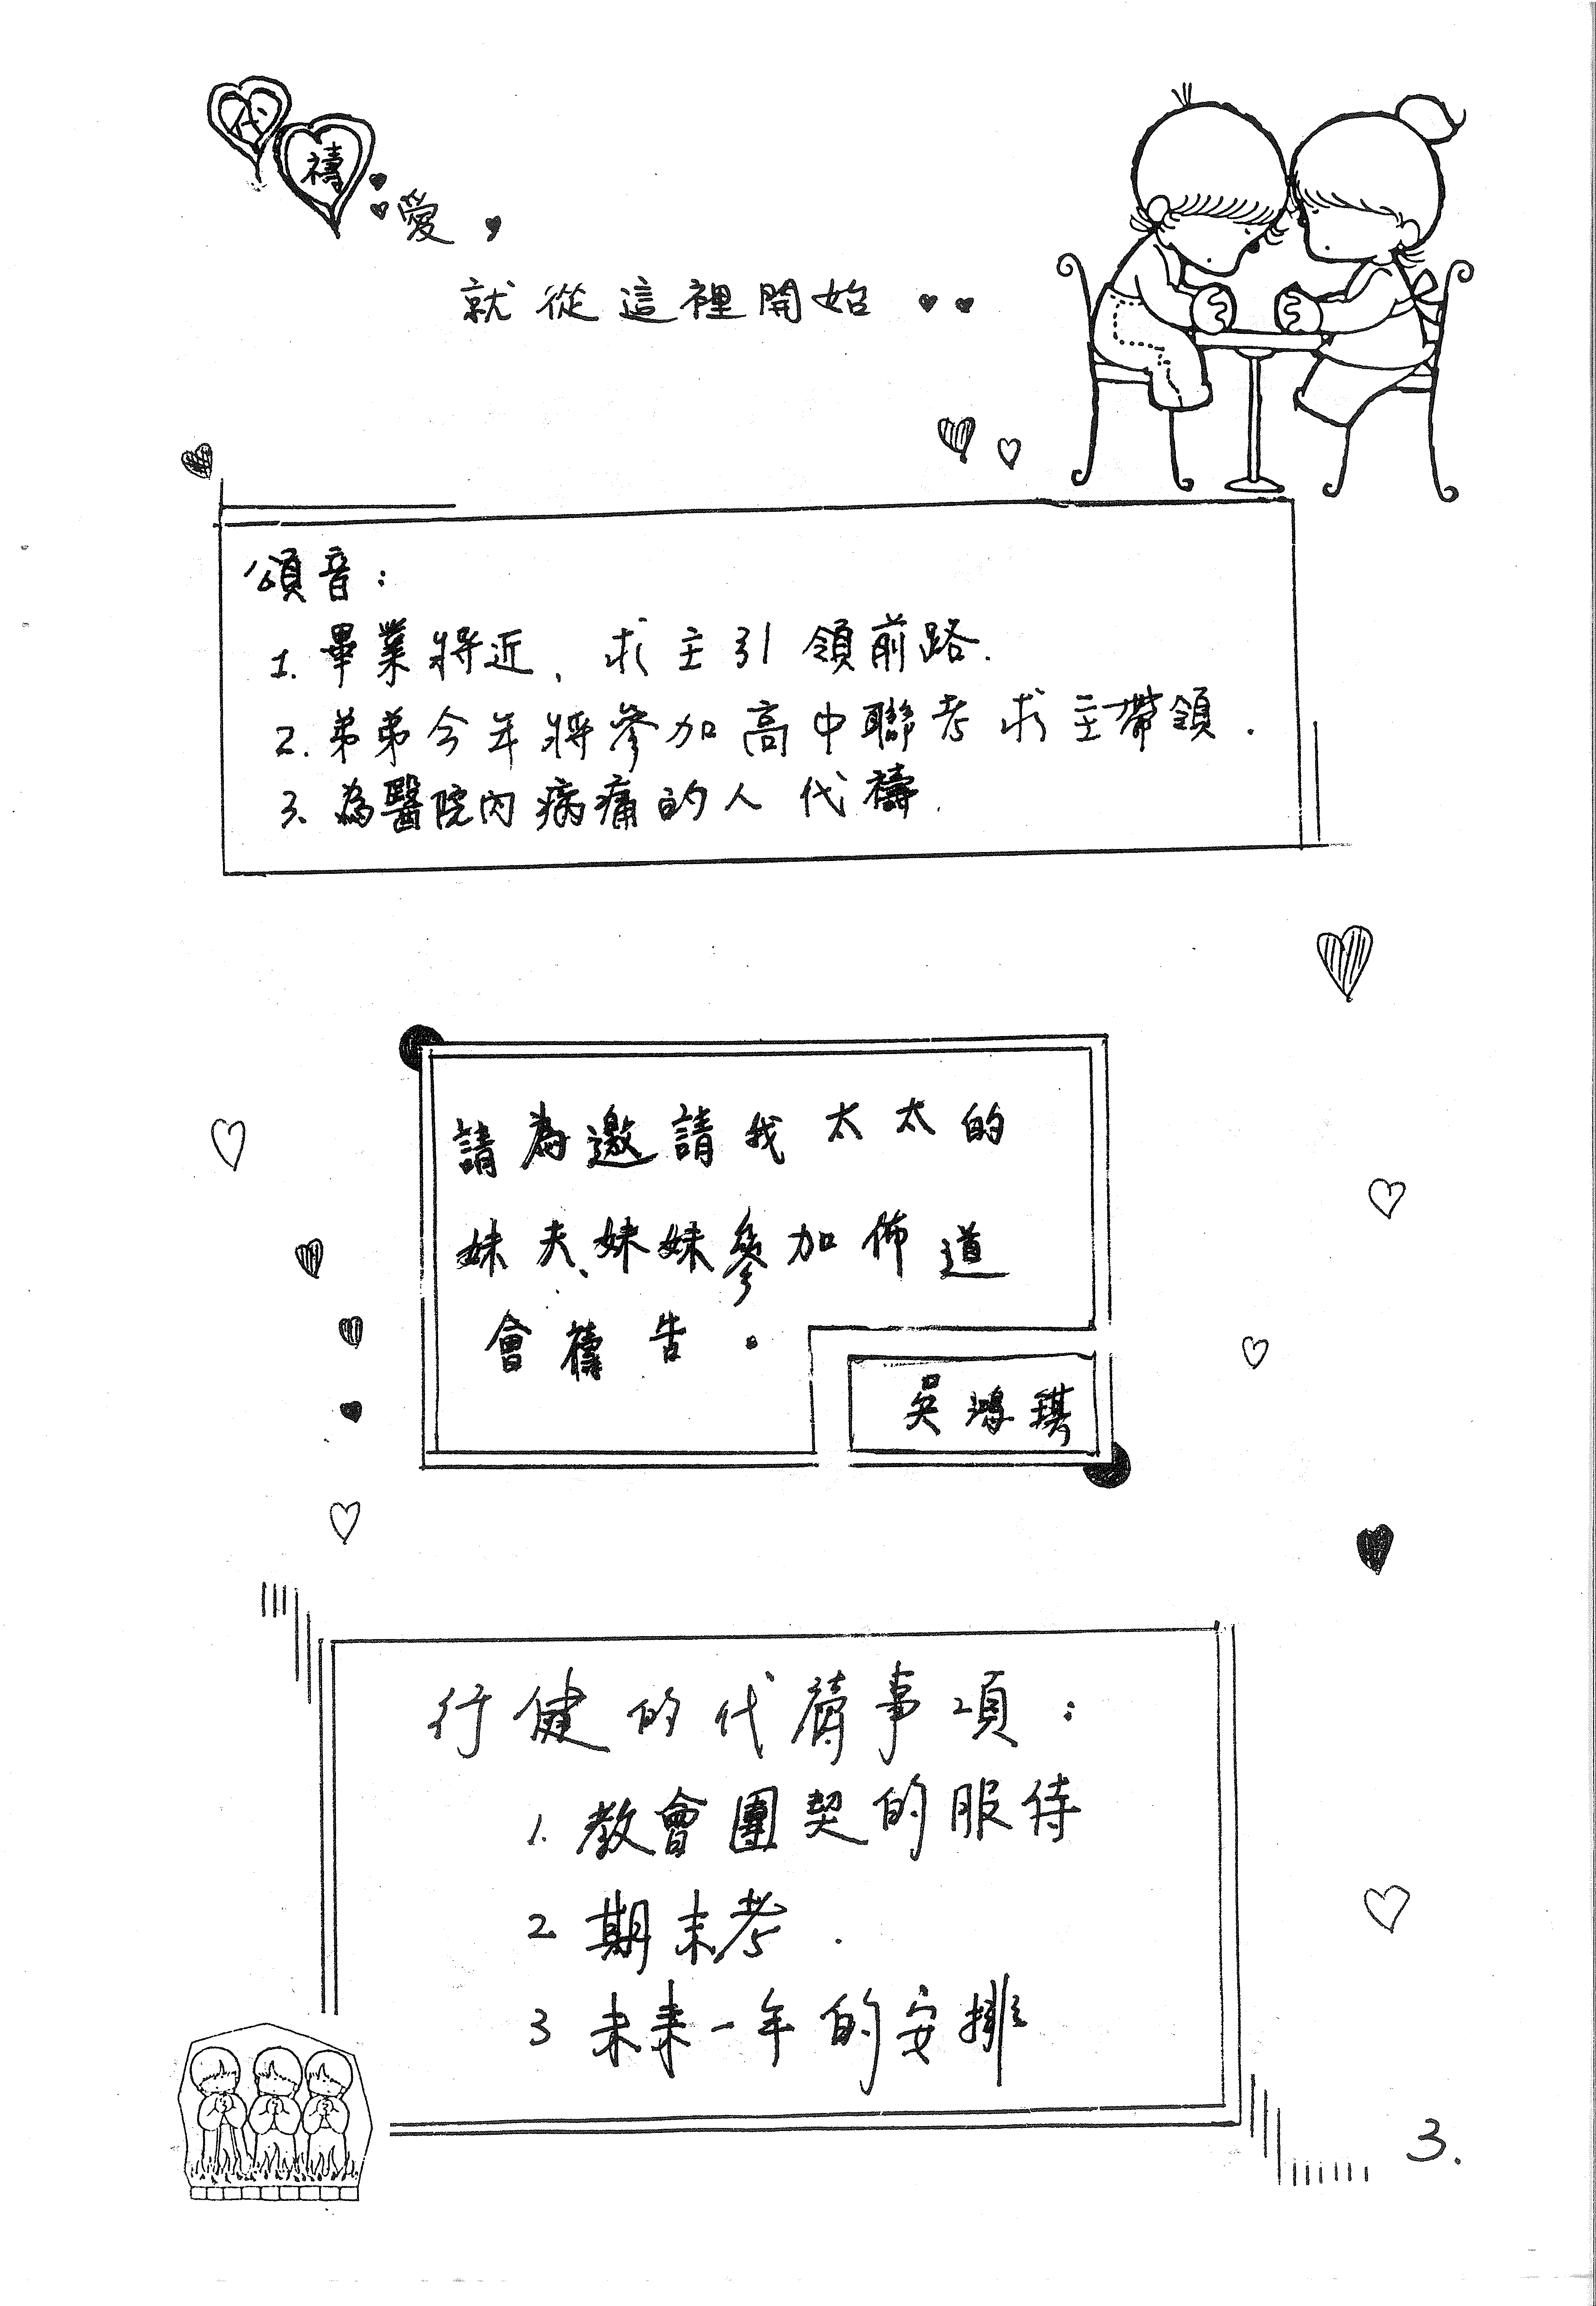 代禱
愛,
就從這裡開始
頌音：
1. 畢業將近、求主引領前路.
2. 弟弟今年將參加高中聯考求主帶領.
3. 為醫院內病痛的人代禱.
請為邀請我太太的
妹夫、妹妹參加佈道
會禱告。
吳鴻琪
行健的代禱事項：
1. 教會團契的服侍
2 期末考.
3 未來一年的安排
3.